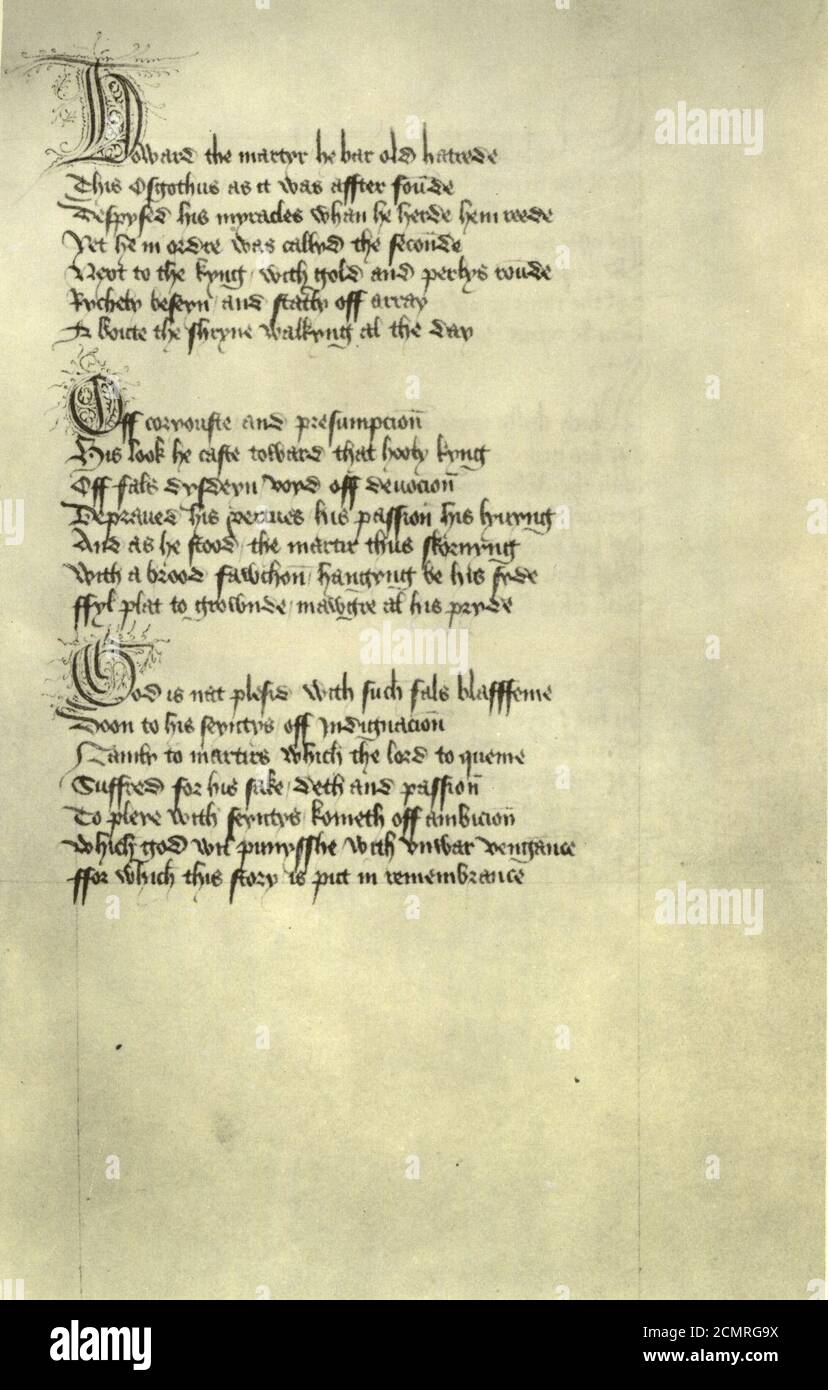 Toward the martyr he bar old hatrede
This Osgothus as it was affter foūde
Despysed his myracles whan he herde hem reede
Yet he in ordre was callyd the secoūde
Next to the kyng / with gold and perlys roūde
Rychely beseyn and statly off array
A boute the shryne walkyng al the day
Off coryouste and presumpcioū
His look he caste toward that hooly kyng
Off fals dysdeyn voyd off deuocioū
Depraued his vertues his passioū his lyuyng
And as he stood / the martir thus skornyng
With a brood fawchoū / hangyng be his syde
ffyl plat to grownde / mawgre al his pryde
God is nat plesid with such fals blasffeme
Doon to his seyntys off Indignacioū
Namly to martirs which the lord to queme
Suffred for his sake / deth and passioū
To pleye with seyntys kometh off ambicioū
Which god wil punysshe with vnwar vengance
ffor which this story is put in remembrance
alamy
alamy
alamy
a
a
a
a
a
a
alamy
Image ID: 2CMRG9X
www.alamy.com